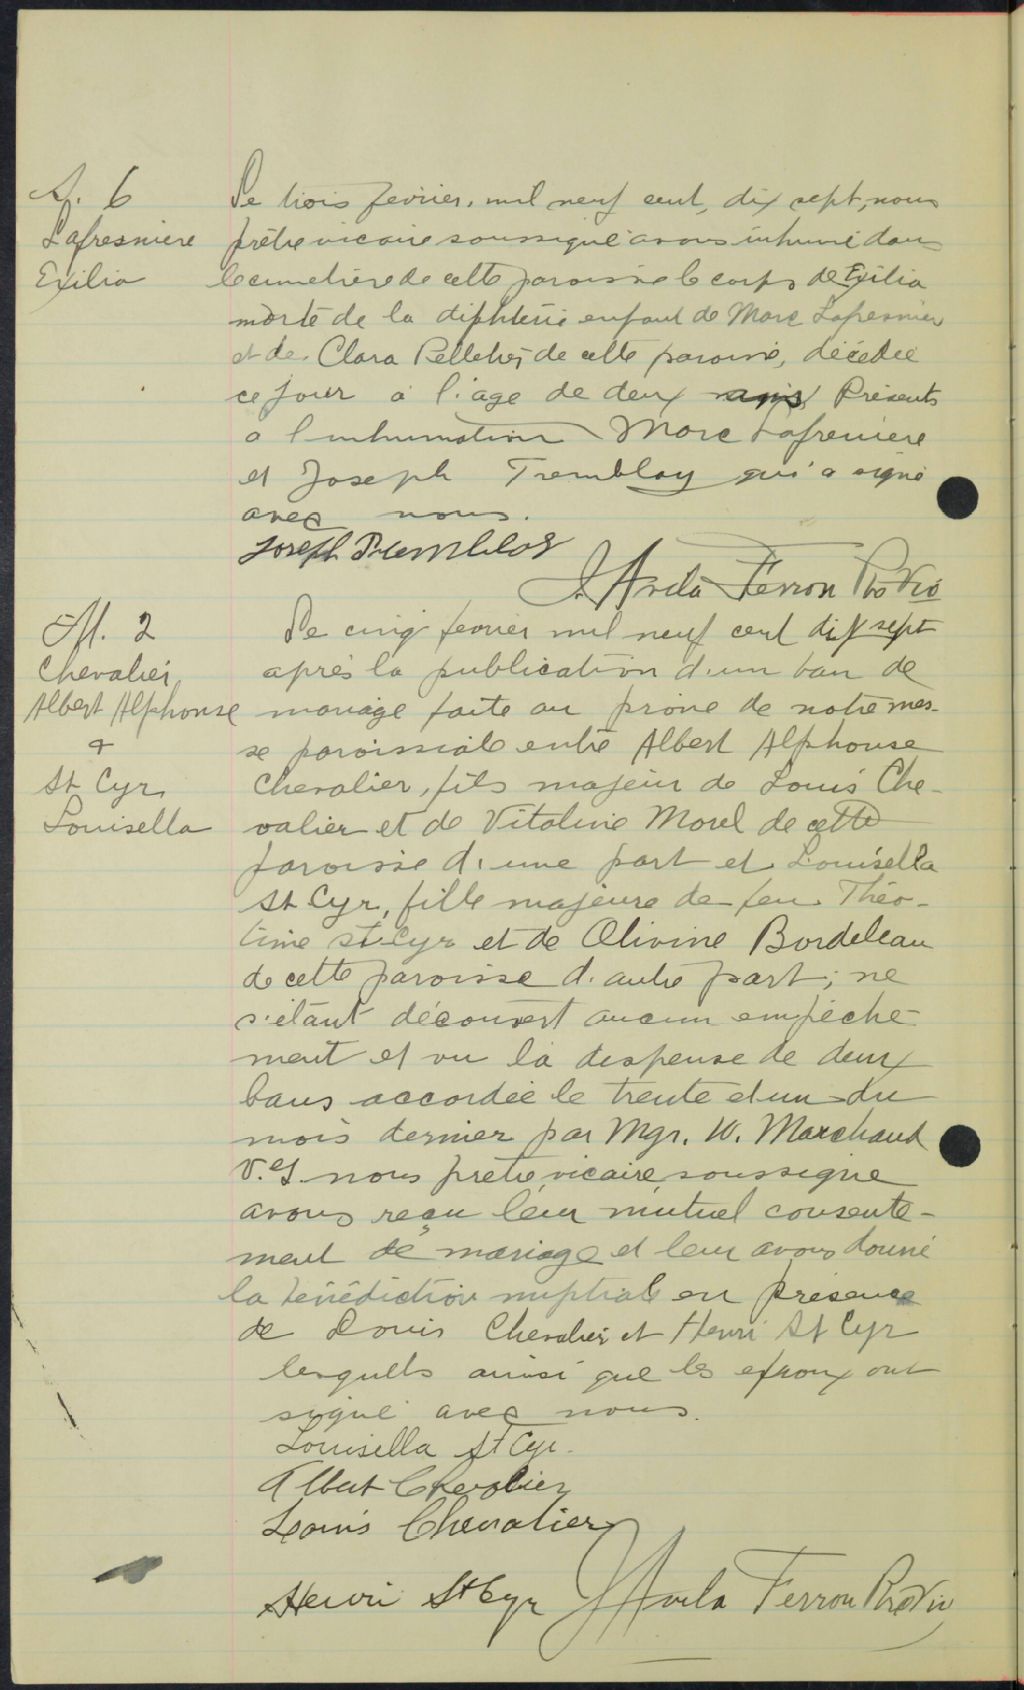 S. 6
Lafresniere
Exilia
Le trois fevrier, mil neuf cent, dix sept, nous
prêtre vicaire soussigné avons inhumé dans
le cimetière de cette paroisse le corps de Exilia
morte de la diphterie enfant de Marc Lafresniere
et de Clara Pelletier de cette paroisse, décédée
ce jour a l'age de deux ans Présents
a l'inhumation Marc Lafreniere
et Joseph Tremblay qui a signé
avec nous.
Joseph Tremblay
J. Avila Ferron Ptre Vic
M. 2
Chevalier,
Albert Alphonse
+
St Cyr,
Louisella
Le cinq fevrier mil neuf cent dix sept
après la publication d'un ban de
mariage faite au prone de notre mes-
se paroissiale entre Albert Alphonse
Chevalier, fils majeur de Louis Che-
valier et de Vitaline Morel de cette
paroisse d'une part et Louisella
St Cyr, fille majeure de feu Théo-
time St Cyr et de Olivine Bordeleau
de cette paroisse d'autre part; ne
s'étant découvert aucun empêche-
ment et vu la dispense de deux
bans accordée le trente et un du
mois dernier par Mgr. W. Marchand
V.G. nous pretre vicaire soussigne
avons reçu leur mutuel consente-
ment de mariage et leur avons donné
la bénédiction nuptiale en présence
de Louis Chevalier et Henri St Cyr
lesquells ainsi que les epoux ont
signé avec nous.
Louisella St Cyr.
Albert Chevalier
Louis Chevalier
Henri St Cyr J Avila Ferron Ptre Vic